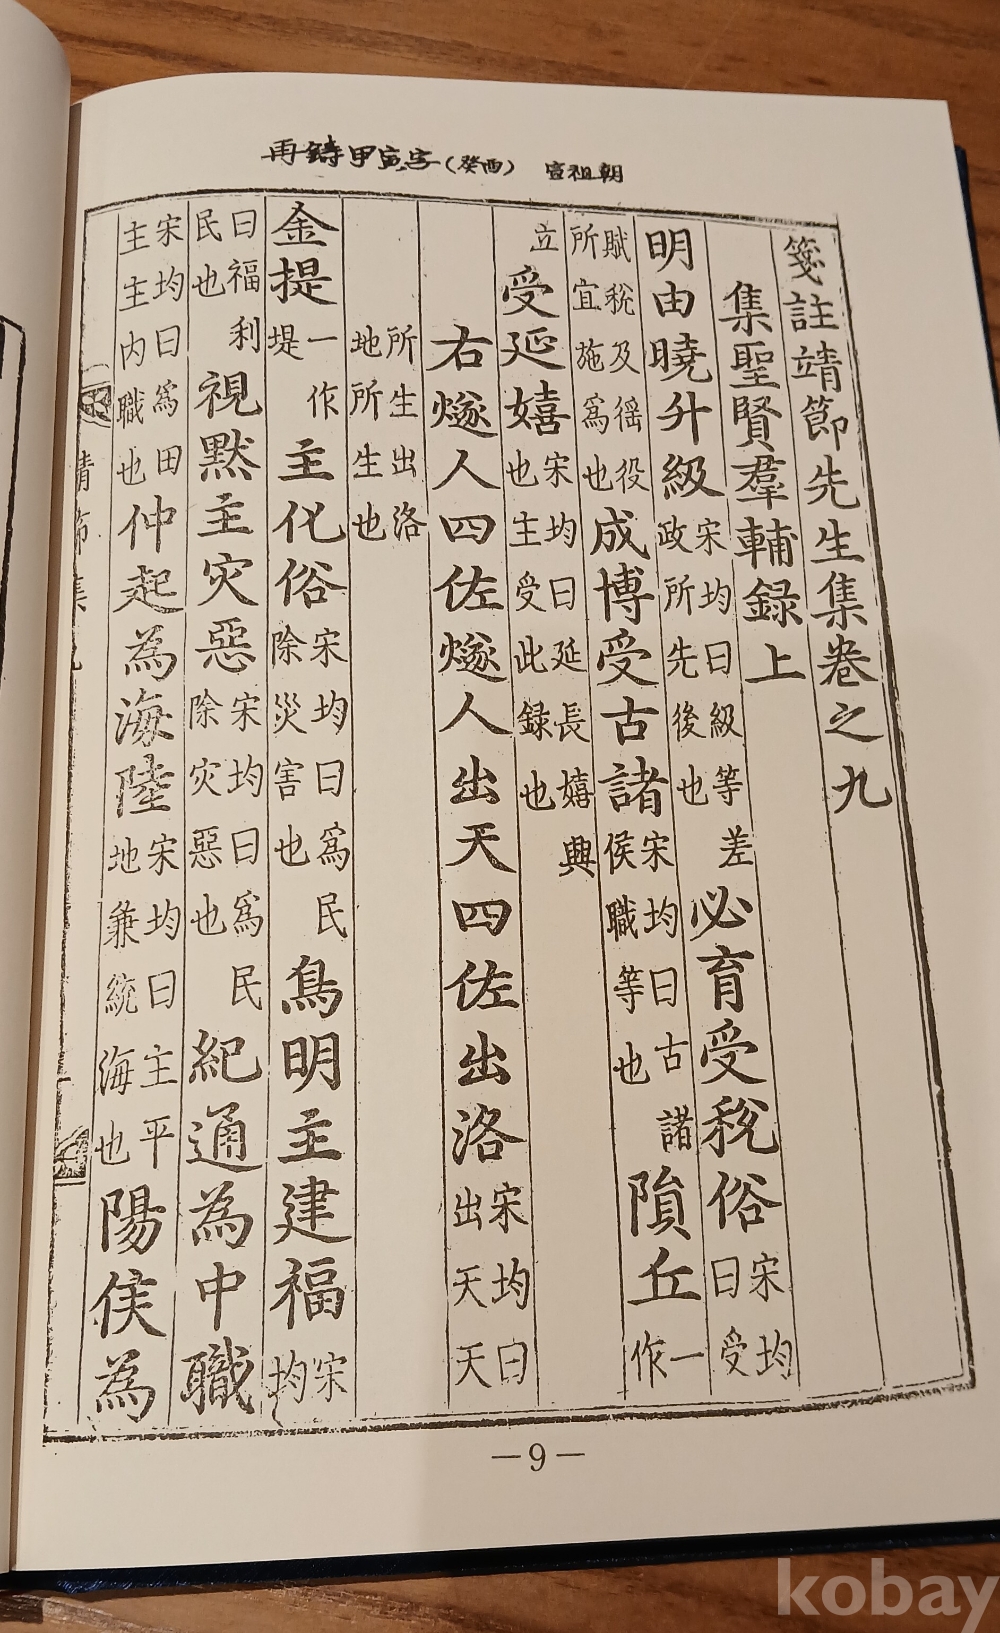 再鑄甲寅字(癸酉) 宣祖朝
箋註靖節先生集卷之九
集聖賢羣輔録上
明由曉升級宋均曰級等差政所先後也必育受稅俗宋均曰受
賦稅及徭役所宜施爲也成博受古諸宋均曰古諸侯職等也隕丘一作
立受延嬉宋均曰延長嬉興也主受此録也
右燧人四佐燧人出天四佐出洛宋均曰出天天
所生出洛地所生也
金提一作堤主化俗宋均曰爲民除災害也鳥明主建福宋均
曰福利民也視默主灾惡宋均曰爲民除灾惡也紀通為中職
宋均曰爲田主主内職也仲起為海陸宋均曰主平地兼統海也陽侯為
—9—
kobay